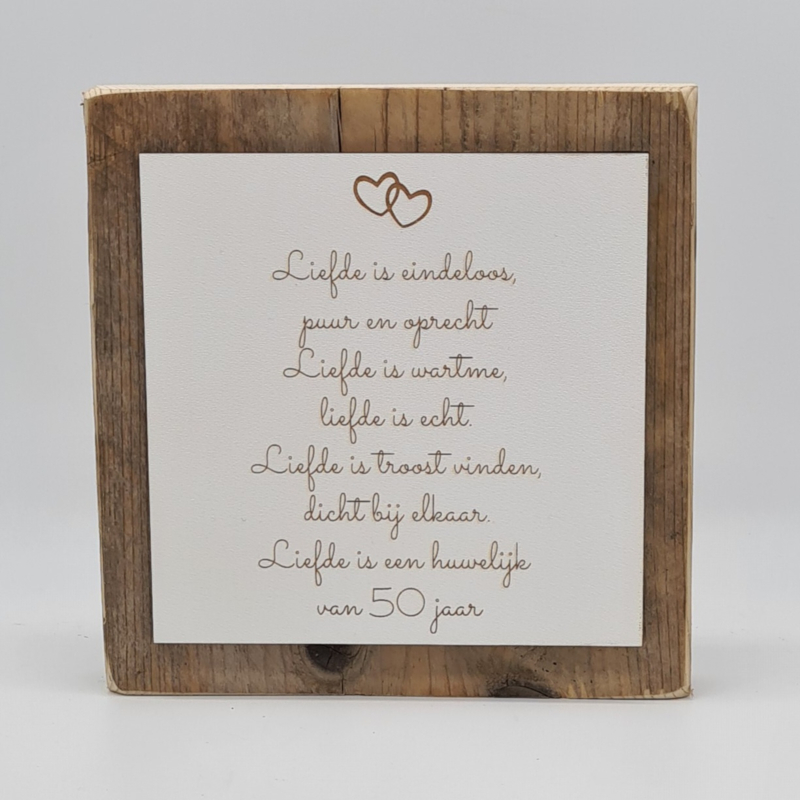 Liefde is eindeloos,
puur en oprecht
Liefde is wartme,
liefde is echt.
Liefde is troost vinden,
dicht bij elkaar.
Liefde is een huwelijk
van 50 jaar